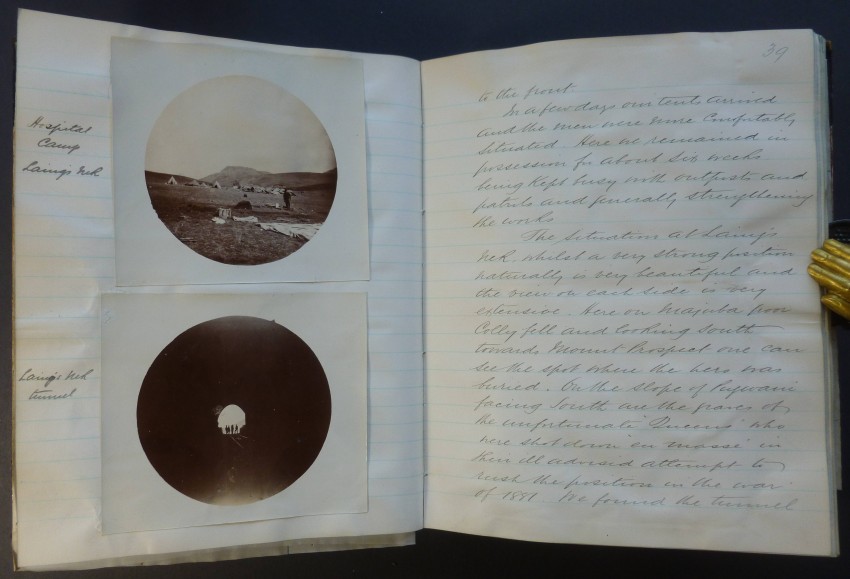 Hospital
Camp
Laings Nek
Laings Nek
tunnel
39
to the front
In a few days our tents arrived
and the men were more comfortably
situated. Here we remained in
possession for about six weeks
being kept busy with outposts and
patrols and generally strengthening
the works.
The situation at Laing's
Nek, whilst a very strong position
naturally is very beautiful and
the view on each side is very
extensive. Here on Majuba poor
Colly fell and looking South
towards Mount Prospect one can
see the spot where the hero was
buried. On the slope of
facing South are the graves of
the unfortunate "Queens" who
were shot down 'en masse' in
their ill advised attempt to
rush the position in the war
of 1881. We found the tunnel